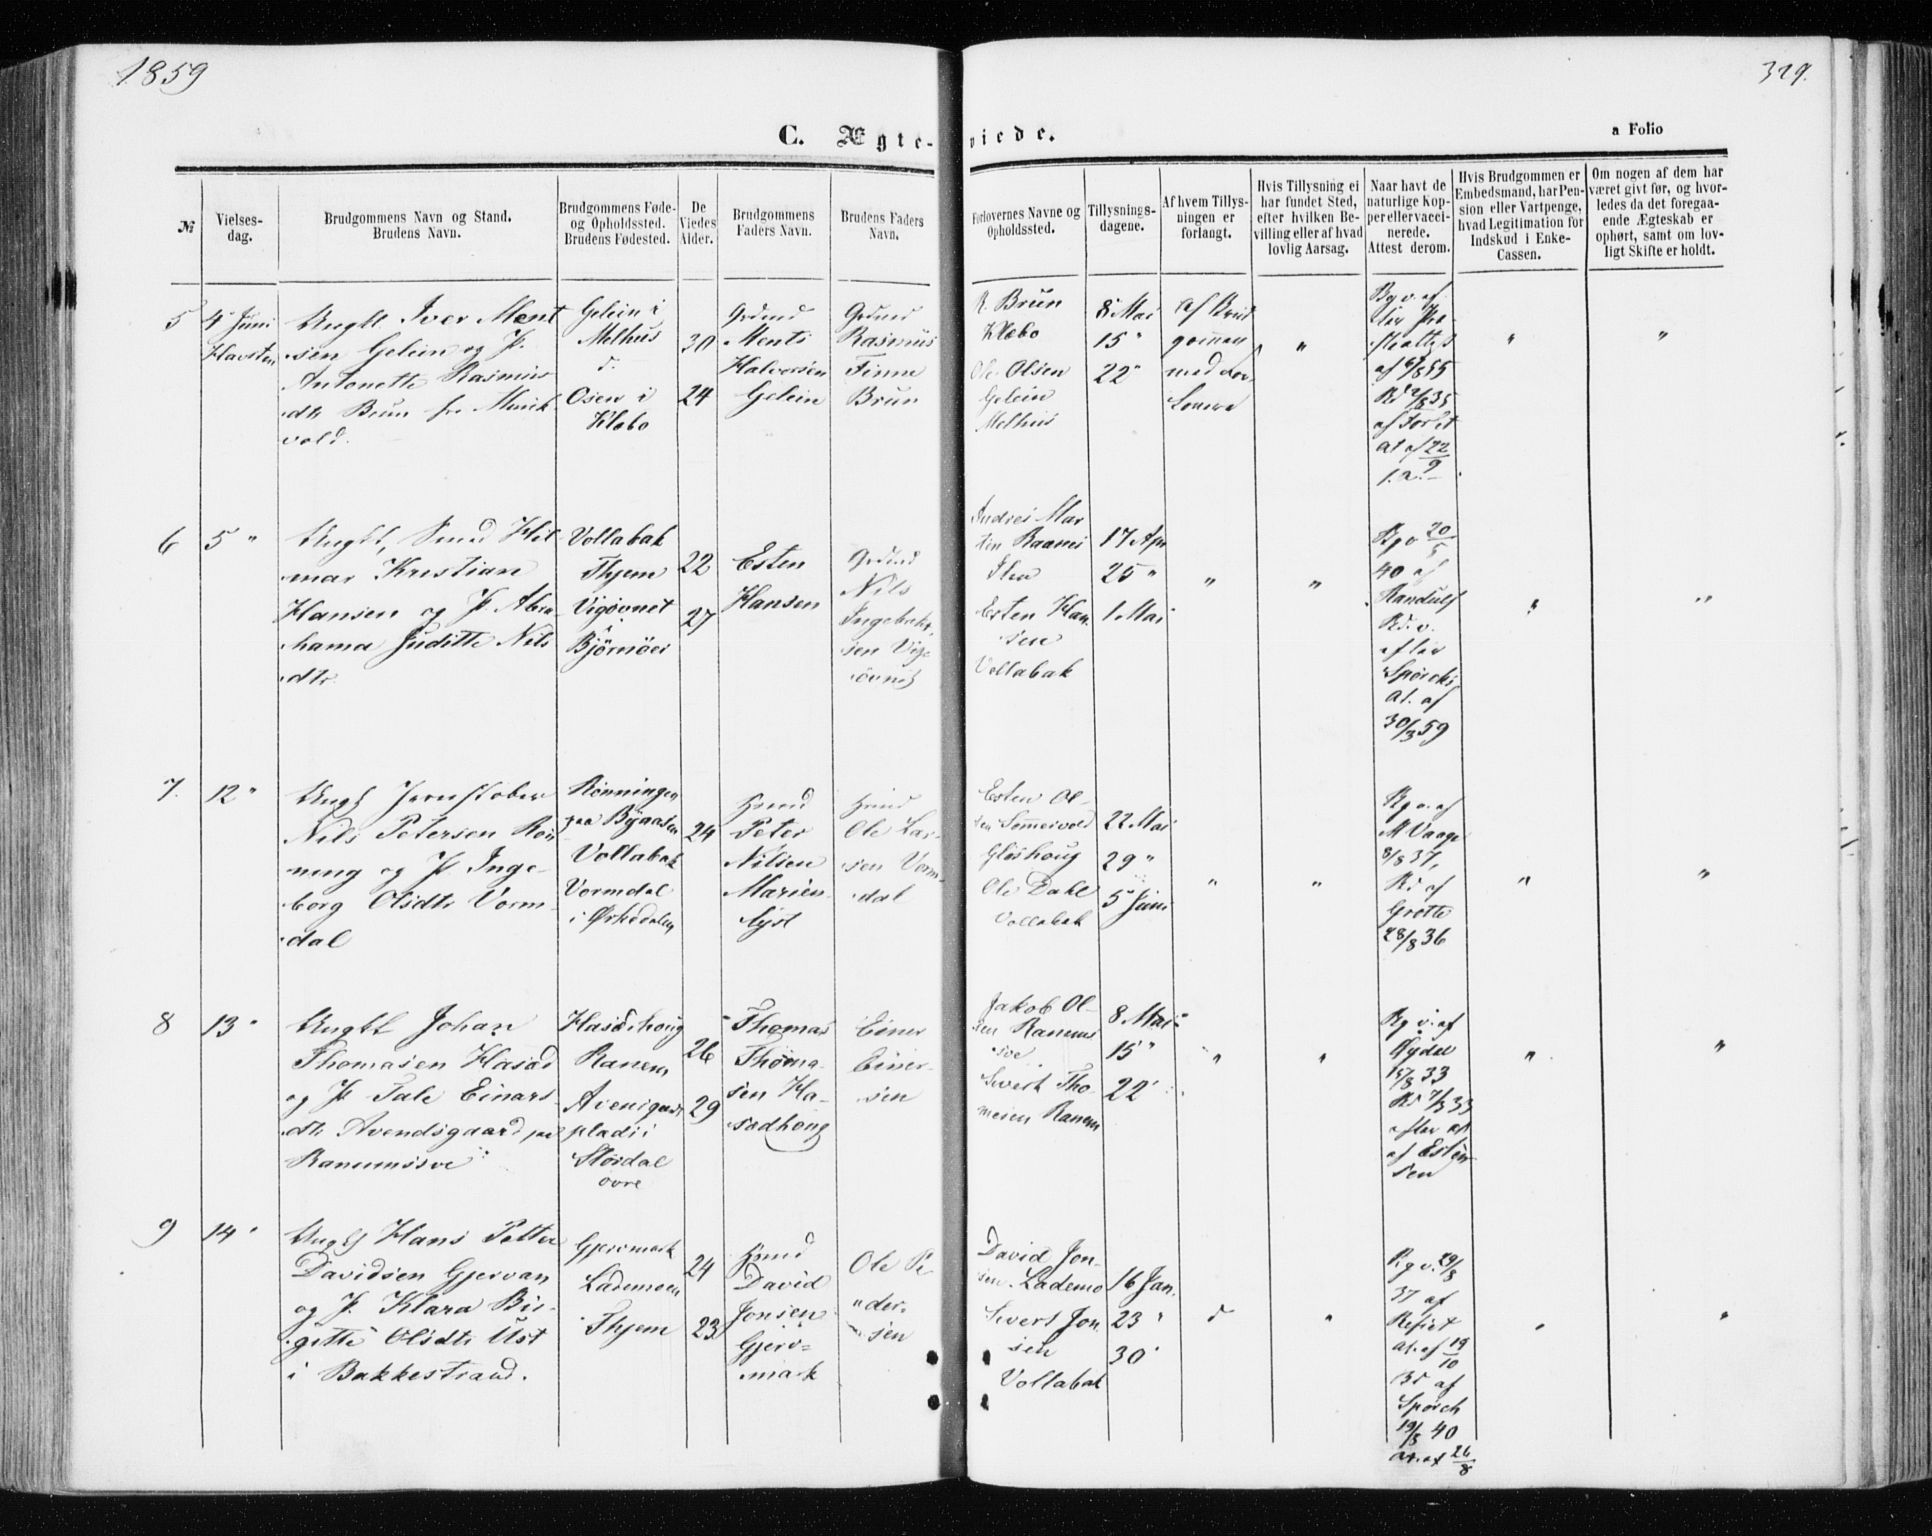 1859
329.
C. Ægte-viede.
a Folio
№
Vielses-
dag.
Brudgommens Navn og Stand.
Brudens Navn.
Brudgommens Føde-
og Opholdssted.
Brudens Fødested.
De
Viedes
Alder.
Brudgommens
Faders Navn.
Brudens Faders
Navn.
Forlovernes Navne og
Opholdssted.
Tillysnings-
dagene.
Af hvem Tillys-
ningen er
forlangt.
Hvis Tillysning ei
har fundet Sted,
efter hvilken Be-
villing eller af hvad
lovlig Aarsag.
Naar havt de
naturlige Kop-
per eller vacci-
nerede.
Attest derom.
Hvis Brudgommen er
Embedsmand, har Pen-
sion eller Vartpenge,
hvad Legitimation for
Indskud i Enke-
Cassen.
Om nogen af dem har
været givt før, og hvor-
ledes da det foregaa-
ende Ægteskab er
ophørt, samt om lov-
ligt Skifte er holdt.
5
4 Juni
Havsten
Ungk. Iver Ment
sen Gelein og P.
Antonette Rasmus
dtr Brun fra Munk
vold.
Gelein i
Melhus
d.
Osen i
Klebo
30
24
Grdmd
Ments
Halvorsen
Gelein
Grdmd
Rasmus
Finne
Brun
R. Brun
Klebo
Ole Olsen
Gelein
Melhus
8 Mai
15 "
22 "
af Brud
gommen
med For-
lovere
"
Bg v. af
af 6/8 55
Bd 2/8 35
At af 22/9
"
"
6
5 "
Ungk. Smed Hil
mar Kristian
Hansen og P Abra
hama Juditte Nils
dtr.
Vollabak
Thjem
Vigøvnet
i
Bjørnør
22
27
Esten
Hansen
Grdmd
Nils
Ingebrkt.
sen Vig
øvnet
Andreas Mar
tin Raanes
Ilen
Esten Han
sen
Vollabak
17 Apr
25 "
1 Mai
"
"
Bg v 20/5
40 af
Randulf
Bd. v.
efter
Spørcks
At. af
30/3 59
"
"
7.
12 "
Nils Peterson Røn
ning og P Inge-
borg Olsdtr Vorm-
dal
Rønningen
paa Byaasen
Vollabak
Vormdal
i Ørkedalen
24
Hsmd
Peter
Nilsen
Marien
lyst
Hsmd
Ole Lar-
sen Vorm-
dal
Esten Ol-
sen Sommervold
Gløshoug
Ole Dahl
Vollabak
22 Mai
29 "
5 Juni
"
"
Bg v. af
M Vaage
8/8 37,
Bd af
Grøtte
28/8 36
"
"
8
13 "
Ungkl Johan
Thomasen Hasad
og P Tale Einars
dtr Avendsgaard paa
Ranumsøve
Hasadhoug
Ranem
pladsi i
Størdal
øvre
26
29
Thomas
Thoma-
sen Ha-
sadhoug
Einer
Einer-
sen
Jakob Ol-
sen Ranums
øve
Sivert Tho
mesen Ranem
8 Mai
15 "
22 "
"
"
Bg v. af
15/8 33
Bd 7/8 33
efter at
af Esten
sen
"
"
9
14 "
Ungk Hans Petter
Davidsen Gjervan
og P. Klara Bir-
gitte Olsdtr Ust
i Bakkestrand.
Gjervmark
Lademoen
Thjem
24
23
Hsmd
David
Jonsen
Gjerv-
mark
Ole Pe
der-
sen
David Jon-
sen. Lademo
Sivert Jon
sen
Vollabak
16 Jan.
23 "
30 "
d
"
Bg v. 29/8
37 af
At. af 19/10
Bd af
Spørck
19/5 40
At. af 26/8
"
"